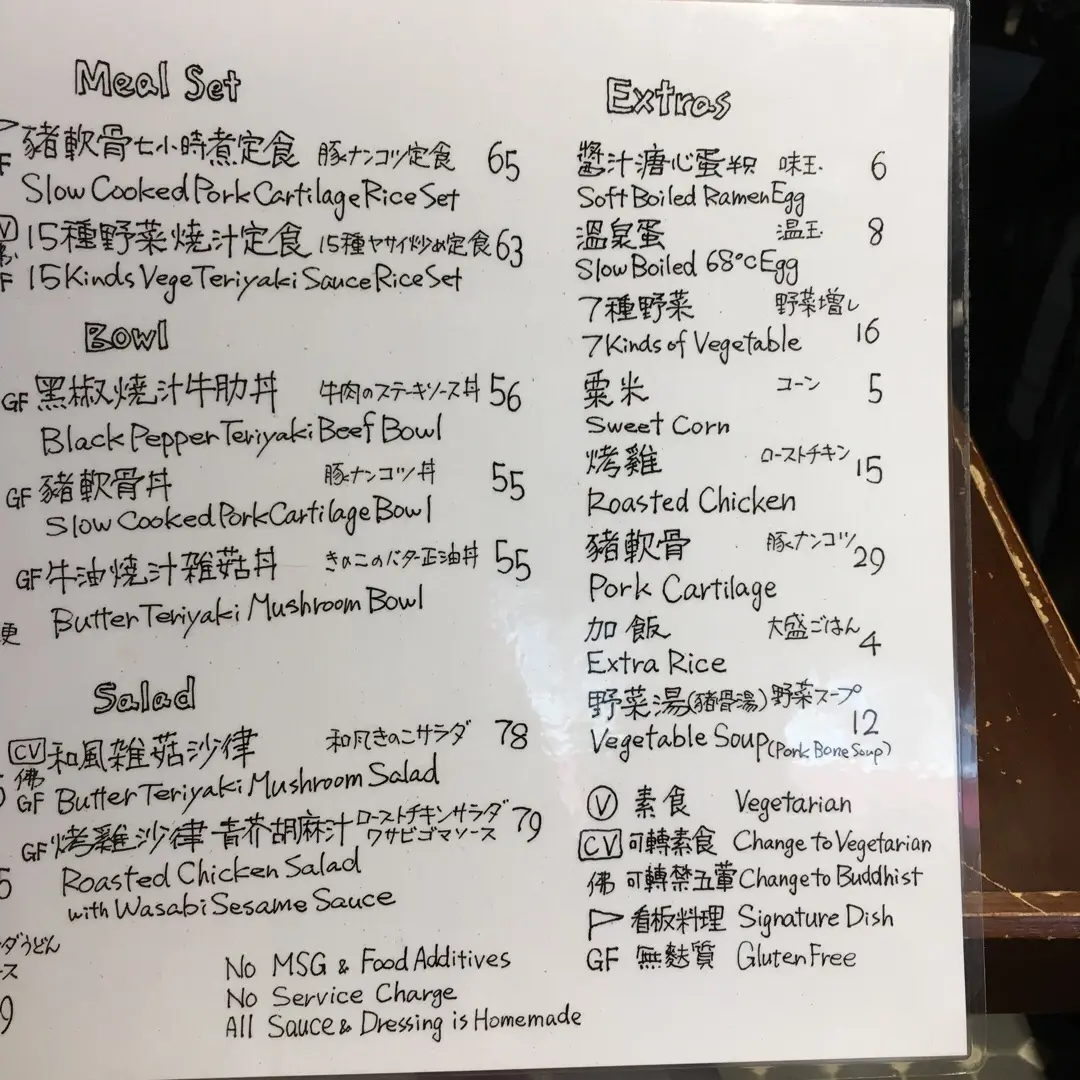 Meal Set
豬軟骨七小時煮定食 豚ナンコツ定食 65
F
Slow Cooked Pork Cartilage Rice Set
V 15種野菜燒汁定食 15種ヤサイ炒め定食 63
佛
F 15 Kinds Vege Teriyaki Sauce Rice Set
Bowl
GF 黑椒燒汁牛肋丼 牛肉のステーキソース丼 56
Black Pepper Teriyaki Beef Bowl
GF 豬軟骨丼 豚ナンコツ丼 55
Slow Cooked Pork Cartilage Bowl
GF 牛油燒汁雑菇丼 きのこのバター正油丼 55
Butter Teriyaki Mushroom Bowl
更
Salad
CV 和風雑菇沙律 和風きのこサラダ 78
佛
GF Butter Teriyaki Mushroom Salad
GF 烤雞沙律 青芥胡麻汁 ローストチキンサラダ 79
ワサビゴマソース
5 Roasted Chicken Salad
with Wasabi Sesame Sauce
ダうどん
ース
9
No MSG & Food Additives
No Service Charge
All Sauce & Dressing is Homemade
Extras
醬汁溏心蛋 味玉 6
Soft Boiled Ramen Egg
溫泉蛋 温玉 8
Slow Boiled 68°C Egg
7種野菜 野菜増し
7 Kinds of Vegetable 16
粟米 コーン 5
Sweet Corn
烤雞 ローストチキン 15
Roasted Chicken
豬軟骨 豚ナンコツ 29
Pork Cartilage
加飯 大盛ごはん 4
Extra Rice
野菜湯(豬骨湯) 野菜スープ
12
Vegetable Soup (Pork Bone Soup)
V 素食 Vegetarian
CV 可轉素食 Change to Vegetarian
佛 可轉禁五葷 Change to Buddhist
看板料理 Signature Dish
GF 無麩質 Gluten Free